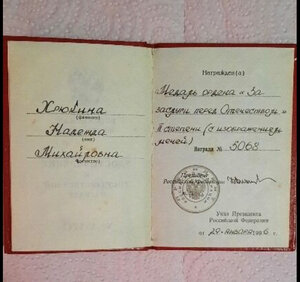 Хрюкина
(фамилия)
(имя)
Михайловна
(отчество)
Награжден(а)
Медаль ордена «За
заслуги перед Отечеством»
II степени (с изображением
мечей)
Награда № 5068
Президент
Российской Федерации
Указ Президента
Российской Федерации
от 29 января 1996 г.